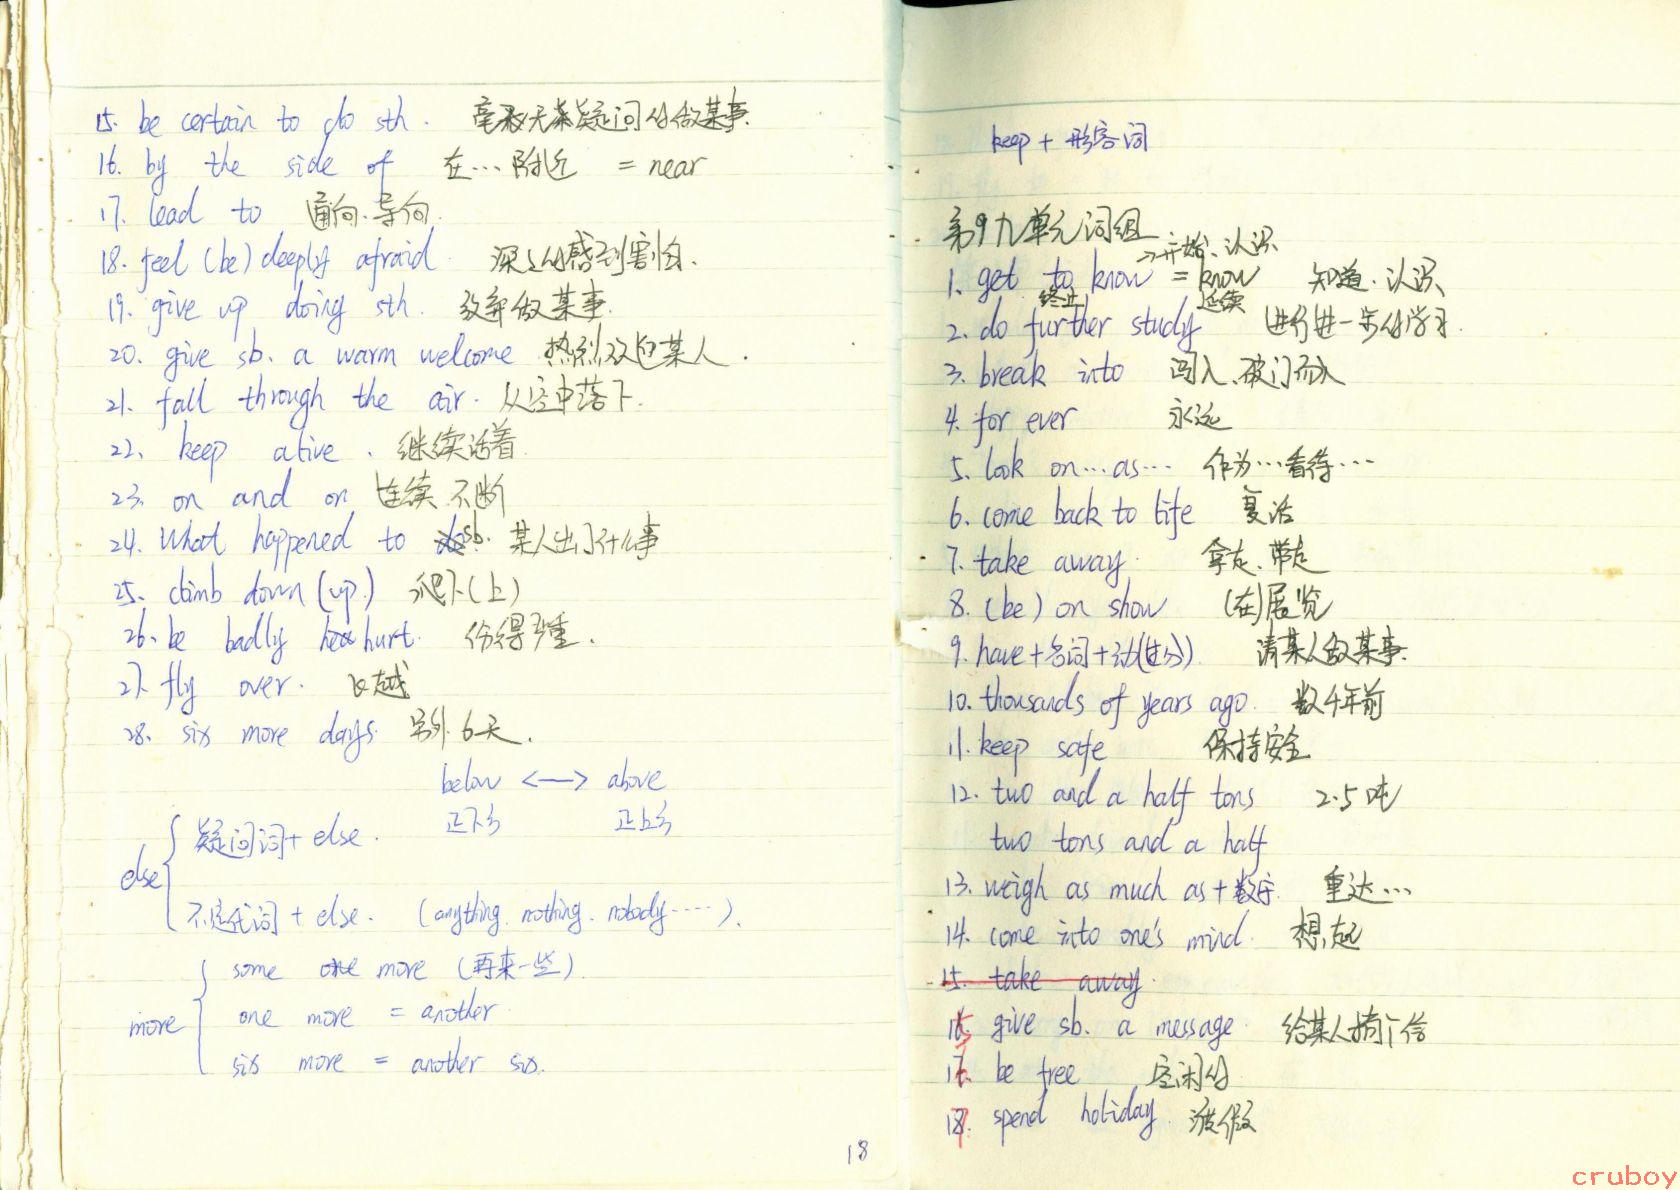 15. be certain to do sth. 毫无疑问的做某事.
16. by the side of 在…附近 = near
17. lead to 通向.导向.
18. feel (be) deeply afraid. 深深的感到害怕.
19. give up doing sth. 放弃做某事.
20. give sb. a warm welcome 热烈欢迎某人.
21. fall through the air. 从空中落下.
22. keep alive. 继续活着
23. on and on 连续.不断
24. What happened to sb. 某人出了什么事
25. climb down (up) 爬下(上)
26. be badly hurt. 伤得严重.
27. fly over. 飞越
28. six more days. 另外6天.
below <—> above
正下方 正上方
else
疑问词+ else.
不定代词 + else. (anything. nothing. nobody……).
more
some more (再来一些)
one more = another
six more = another six.
18
keep + 形容词
第9九单元词组
→开始、认识
1. get to know = know 知道.认识
终止 延续
2. do further study 进行进一步的学习.
3. break into 闯入.破门而入
4. for ever 永远
5. look on…as… 作为…看待…
6. come back to life 复活
7. take away. 拿走.带走
8. (be) on show (在)展览
9. have+名词+动(过分). 请某人做某事.
10. thousands of years ago. 数千年前
11. keep safe 保持安全
12. two and a half tons 2.5吨
two tons and a half
13. weigh as much as + 数字. 重达…
14. come into one's mind. 想起
15. take away.
15. give sb. a message. 给某人捎个信
16. be free 空闲的
17. spend holiday. 渡假
cruboy